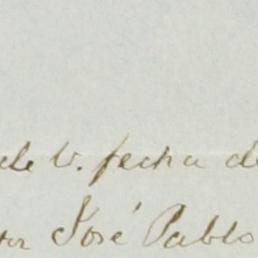 de V. fecha de
por José Pablo